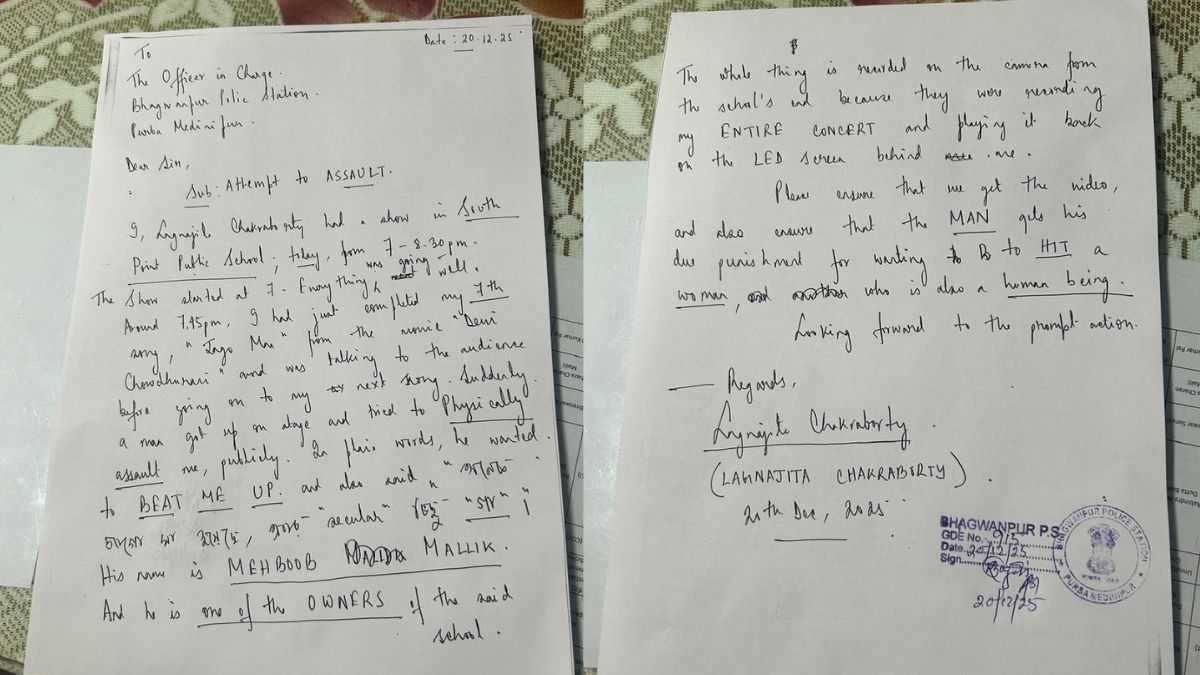 Date : 20.12.25
To
The Officer in Charge.
Bhagwanpur Polic Station.
Purba Medinipur.
Dear Sir,
Sub: Attempt to ASSAULT.
I, Lagnajita Chakraborty had a show in South
Point Public School, today, from 7 - 8.30pm.
The Show started at 7. Everything was going well.
Around 7.45pm, I had just completed my 7th
song, "Jago Maa" from the movie "Devi
Chowdhurani" and was talking to the audience
before going on to my next song. Suddenly
a man got up on stage and tried to Physically
assault me, publicly. In plain words, he wanted
to BEAT ME UP. and also said " অনেক
জাগো মা হয়েছে, "secular" কিছু
His name is MEHBOOB MALLIK.
And he is one of the OWNERS of the said
school.
The whole thing is recorded on the camera from
the school's end because they were recording
my ENTIRE CONCERT and playing it back
on the LED screen behind me.
Please ensure that we get the video,
and also ensure that the MAN gets his
due punishment for wanting to HIT a
woman, who is also a human being.
Looking forward to the prompt action.
Regards,
Lagnajita Chakraborty.
(LAGNAJITA CHAKRABORTY).
20th Dec, 2025
BHAGWANPUR P.S.
GDE No. 915
Date. 20/12/25
Sign.
20/12/25
BHAGWANPUR POLICE STATION
PURBA MEDINIPUR